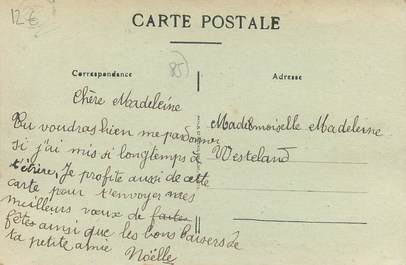 12€
CARTE POSTALE
85)
Correspondance
Adresse
Chère Madeleine
Tu voudras bien me pardonner
si j'ai mis si longtemps à
t'écrire, Je profite aussi de cette
carte pour t'envoyer mes
meilleurs vœux de faites
fêtes ainsi que les bons baisers de
ta petite amie Noëlle
Mademoiselle Madeleine
Westeland